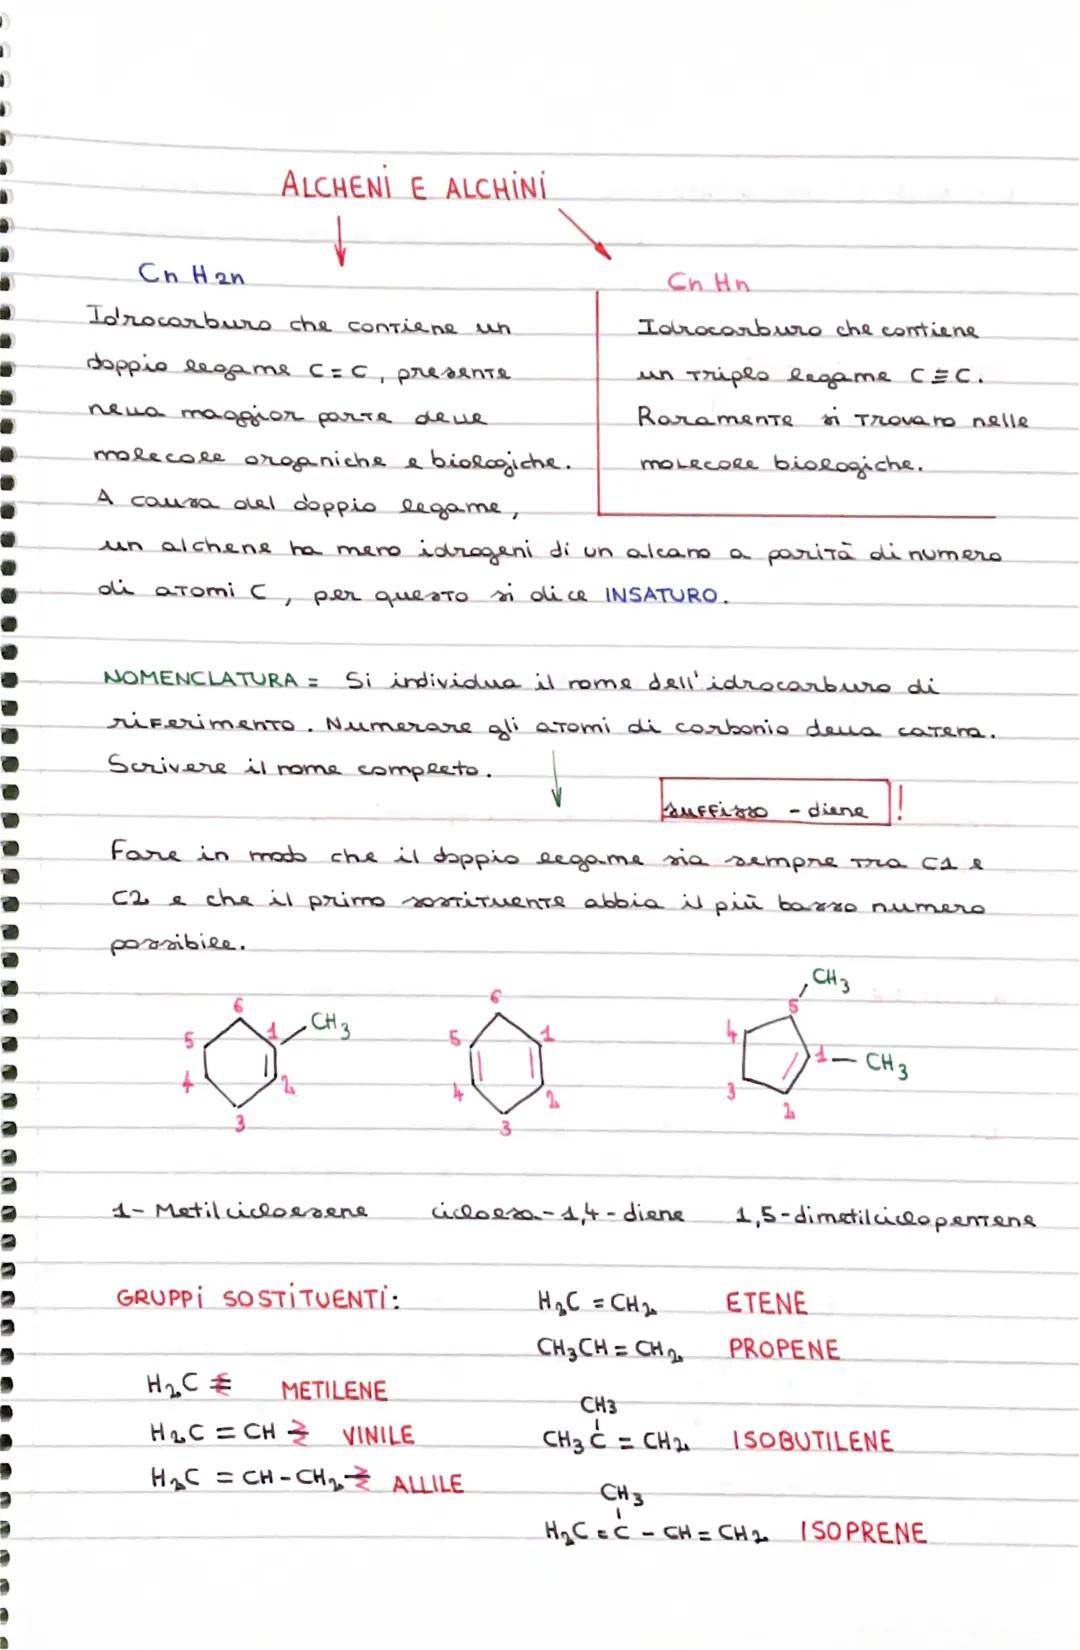 ALCHENI E ALCHINI
Cn H2n
Idrocarburo che contiene un
doppio legame C=C, presente
nella maggior parte delle
molecole organiche e biologiche.
A causa del doppio legame,
Cn Hn
Idrocarburo che contiene
un triplo legame C≡C.
Raramente si trovano nelle
molecole biologiche.
un alchene ha meno idrogeni di un alcano a parità di numero
di atomi C, per questo si dice INSATURO.
NOMENCLATURA = Si individua il nome dell'idrocarburo di
riferimento. Numerare gli atomi di carbonio della catena.
Scrivere il nome completo.
suffisso - diene !
Fare in modo che il doppio legame sia sempre tra C1 e
C2 e che il primo sostituente abbia il più basso numero
possibile.
6 5 1 CH3 4 2 3
6 5 1 4 2 3
CH3 5 4 1 - CH3 3 2
1- Metilcicloesene cicloesa-1,4-diene 1,5-dimetilciclopentene
GRUPPI SOSTITUENTI:
H2C METILENE
H2C = CH VINILE
H2C = CH-CH2 ALLILE
H2C = CH2 ETENE
CH3CH = CH2 PROPENE
CH3
CH3 C = CH2 ISOBUTILENE
CH3
H2C = C - CH = CH2 ISOPRENE